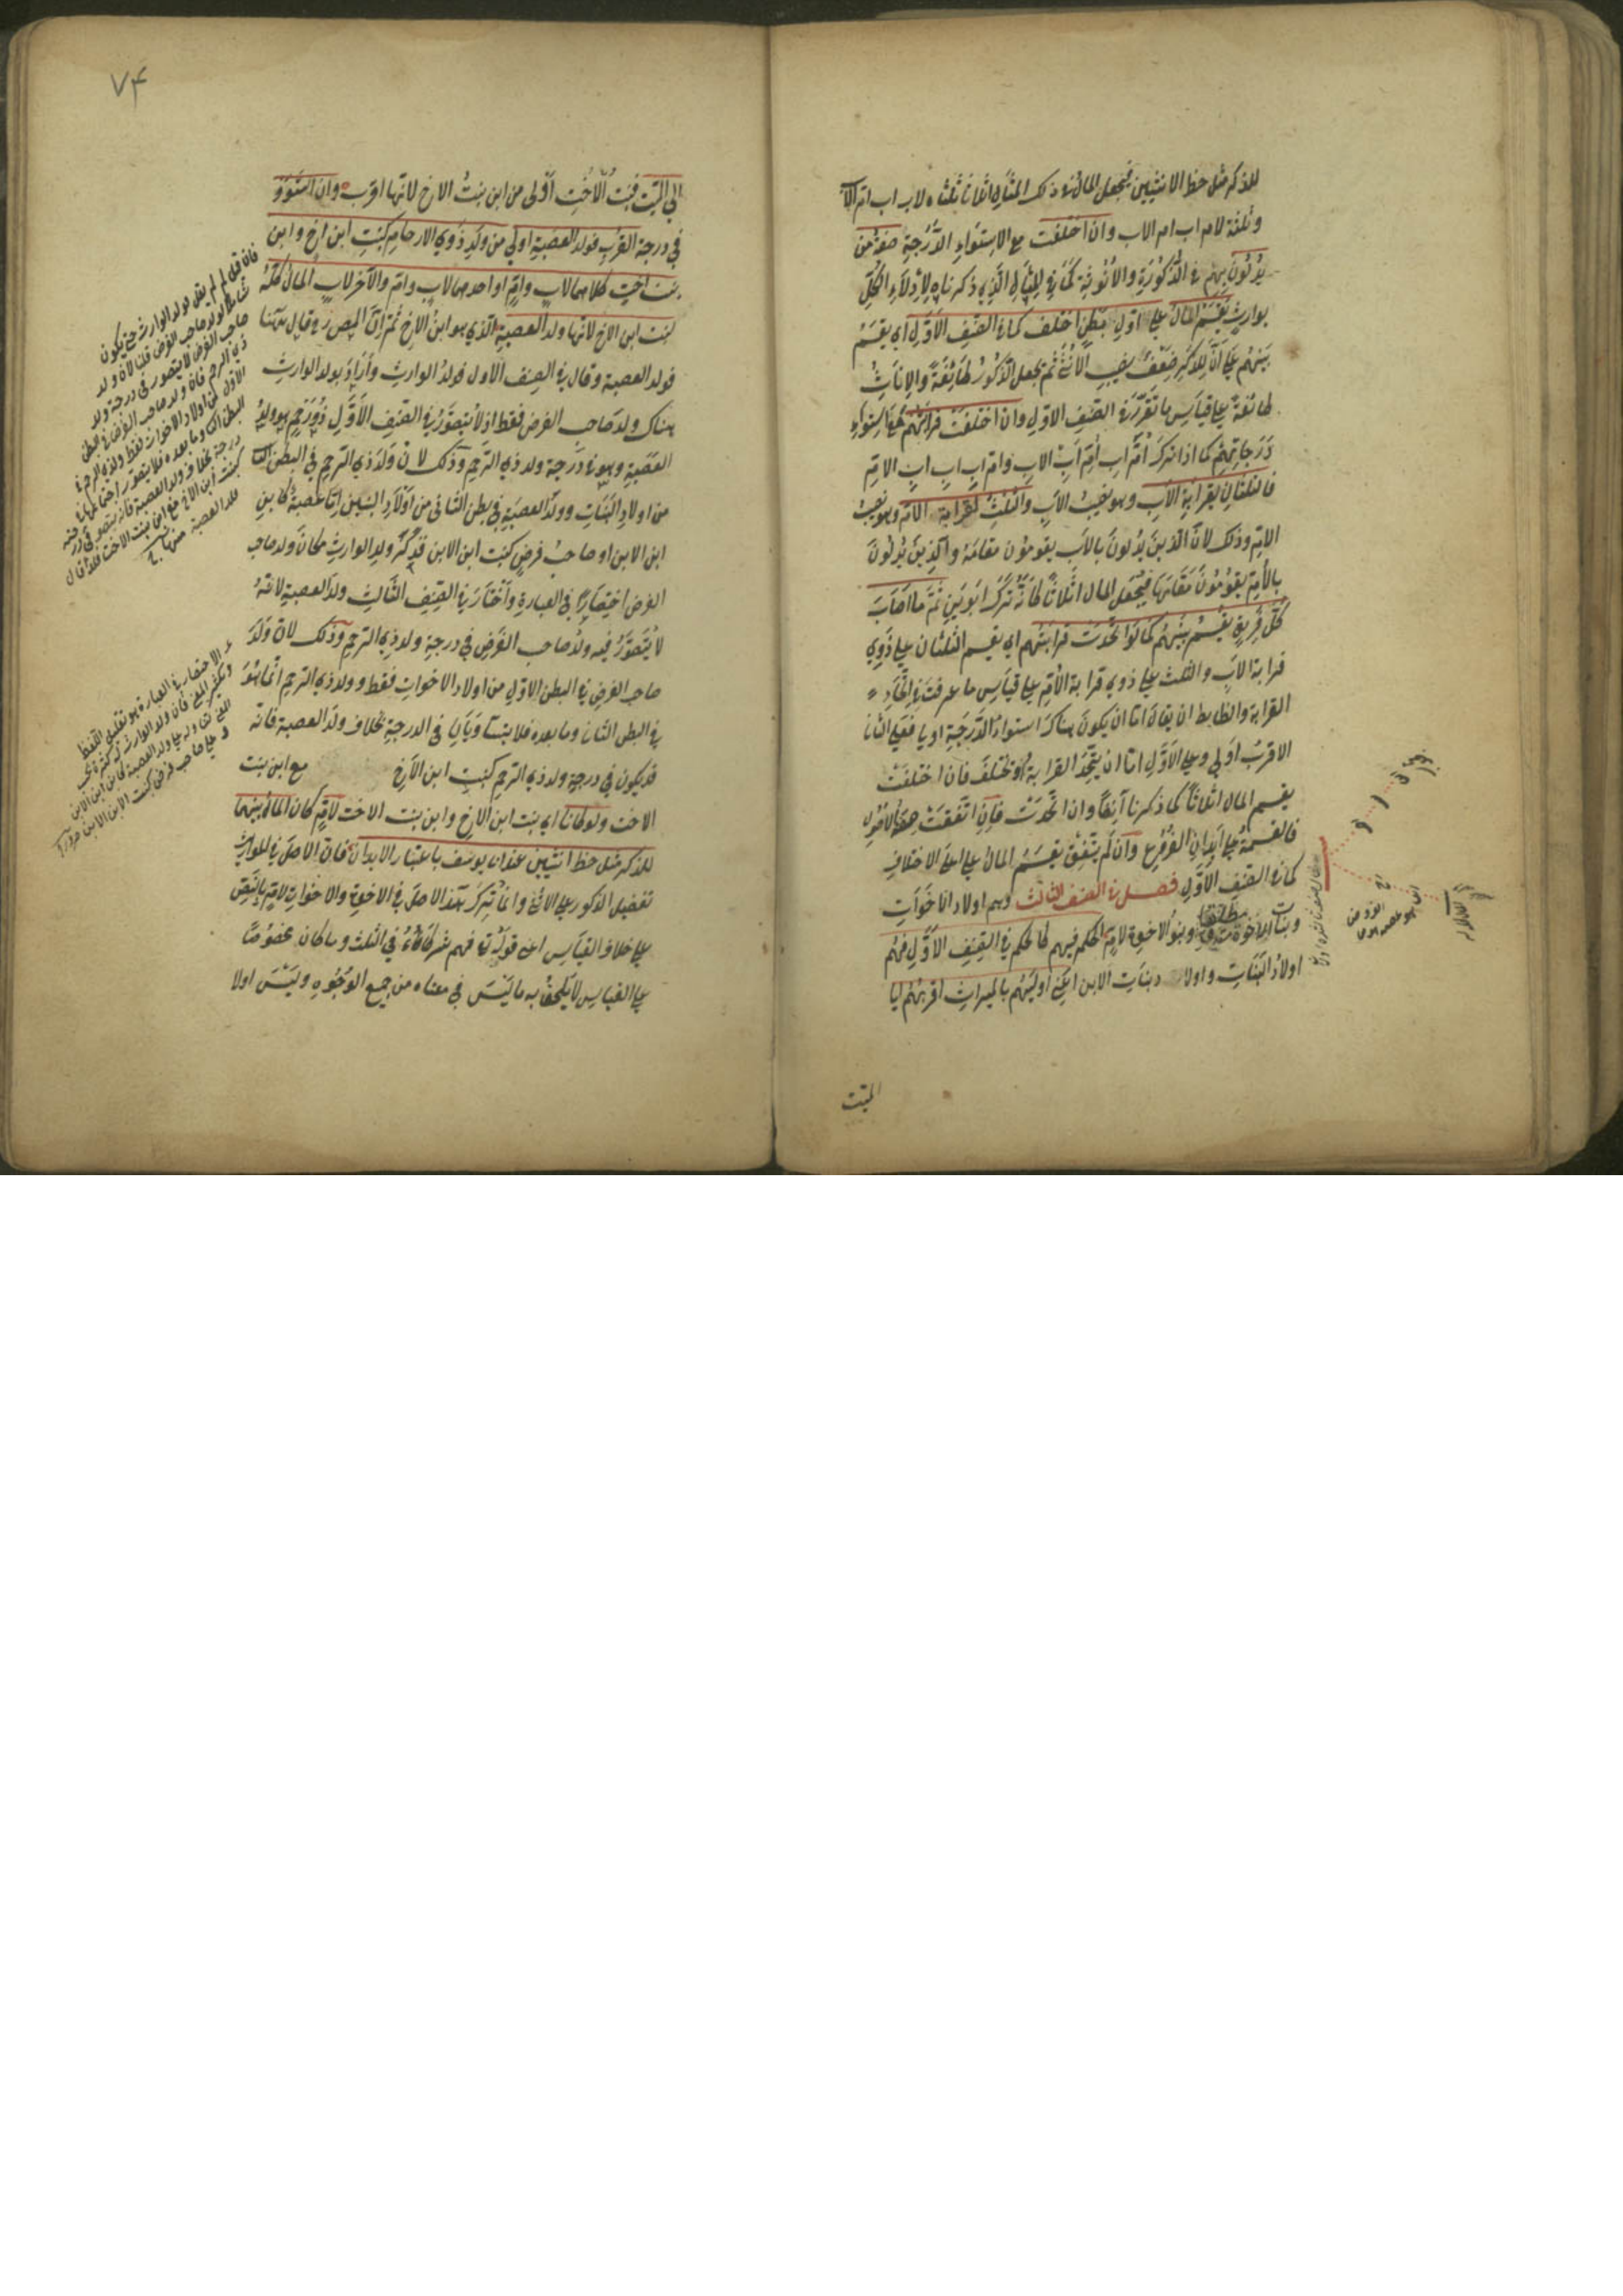 للذكر مثل حظ الانثيين فيجعل المال في ذلك المثال اثلاثا ثلثاه لاب اب ام الاب
وثلثه لام اب ام الاب وان اختلفت مع الاستواء الدرجة صفة من
يدلون بهم في الذكورة والانوثة كما في المثال الذي ذكرناه لادلاء الكل
بوارث يقسم المال على اول بطن اختلف كما في الصنف الاول اي يقسم
بينهم على ان للذكر ضعف نصيب الانثى ثم يجعل الذكور طائفة والاناث
طائفة على قياس ما تقرر في الصنف الاول وان اختلفت قرابتهم مع استواء
درجاتهم كما اذا ترك ام اب ام اب الاب وام اب اب اب الام
فالثلثان لقرابة الاب وهو نصيب الاب والثلث لقرابة الام وهو نصيب
الام وذلك لان الذين يدلون بالاب يقومون مقامه والذين يدلون
بالام يقومون مقامها فيجعل المال اثلاثا كانه ترك ابوين ثم ما اصاب
كل فريق يقسم بينهم كما لو اتحدت قرابتهم اي يقسم الثلثان على ذوي
قرابة الاب والثلث على ذوي قرابة الام على قياس ما عرفت في اتحاد
القرابة والضابط ان يقال اما ان يكون هناك استواء الدرجة او لا فعلى الثاني
الاقرب اولى وعلى الاول اما ان يتحد القرابة او تختلف فان اختلفت
يقسم المال اثلاثا كما ذكرنا آنفا وان اتحدت فان اتفقت صفة الاصول
فالقسمة على ابدان الفروع وان لم يتفق يقسم المال على اعلى الاختلاف
كما في الصنف الاول فصل في الصنف الثالث وهم اولاد الاخوات
وبنات الاخوة مطلقا وبنو الاخوة لام الحكم فيهم كالحكم في الصنف الاول فهم
اولاد البنات واولاد بنات الابن اعني اوليهم بالميراث اقربهم اليا
الميت
٧۴
الى الميت فبنت الاخت اولى من ابن بنت الاخ لانها اقرب وان استووا
في درجة القرب فولد العصبة اولى من ولد ذوي الارحام كبنت ابن اخ وابن
بنت اخت كلاهما لاب وام او احدهما لاب وام والآخر لاب المال كله
لبنت ابن الاخ لانها ولد العصبة الذي هو ابن الاخ ثم ان المص ره قال ههنا
فولد العصبة وقال في الصنف الاول فولد الوارث واراد بولد الوارث
هناك ولد صاحب الفرض فقط اذ لا يتصور في الصنف الاول ذو رحم هو ولد
العصبة وهو في درجة ولد ذي الرحم وذلك لان ولد ذي الرحم في البطن الثا
من اولاد البنات وولد العصبة في بطن الثاني من اولاد البنين اما عصبة كابن
ابن الابن او صاحب فرض كبنت ابن الابن فذكر ولد الوارث مكان ولد صاحب
الفرض اختصارا في العبارة واختار في الصنف الثالث ولد العصبة لانه
لا يتصور فيه ولد صاحب الفرض في درجة ولد ذي الرحم وذلك لان ولد
صاحب الفرض في البطن الاول من اولاد الاخوات فقط وولد ذي الرحم انما هو
في البطن الثاني وما بعده فلا يتساويان في الدرجة بخلاف ولد العصبة فانه
قد يكون في درجة ولد ذي الرحم كبنت ابن الاخ مع ابن بنت
الاخت ولو كانا اي بنت ابن الاخ وابن بنت الاخت لام كان المال بينهما
للذكر مثل حظ انثيين عند ابي يوسف باعتبار الابدان فان الاصل في المواريث
تفضيل الذكور على الانثى وانما ترك هذا الاصل في الاخوة والاخوات لام بالنص
على خلاف القياس اعني قوله تعا فهم شركاء في الثلث وما كان مخصوصا
على القياس لا يلحق به ما ليس في معناه من جميع الوجوه وليس اولا
فان قيل لم لم يقل بولد الوارث حتى يكون
شاملا لولد صاحب الفرض قلنا لان ولد
صاحب الفرض لا يتصور في درجة ولد
ذي الرحم فان ولد صاحب الفرض في البطن
الاول من اولاد الاخوات فقط وولد ذي الرحم في